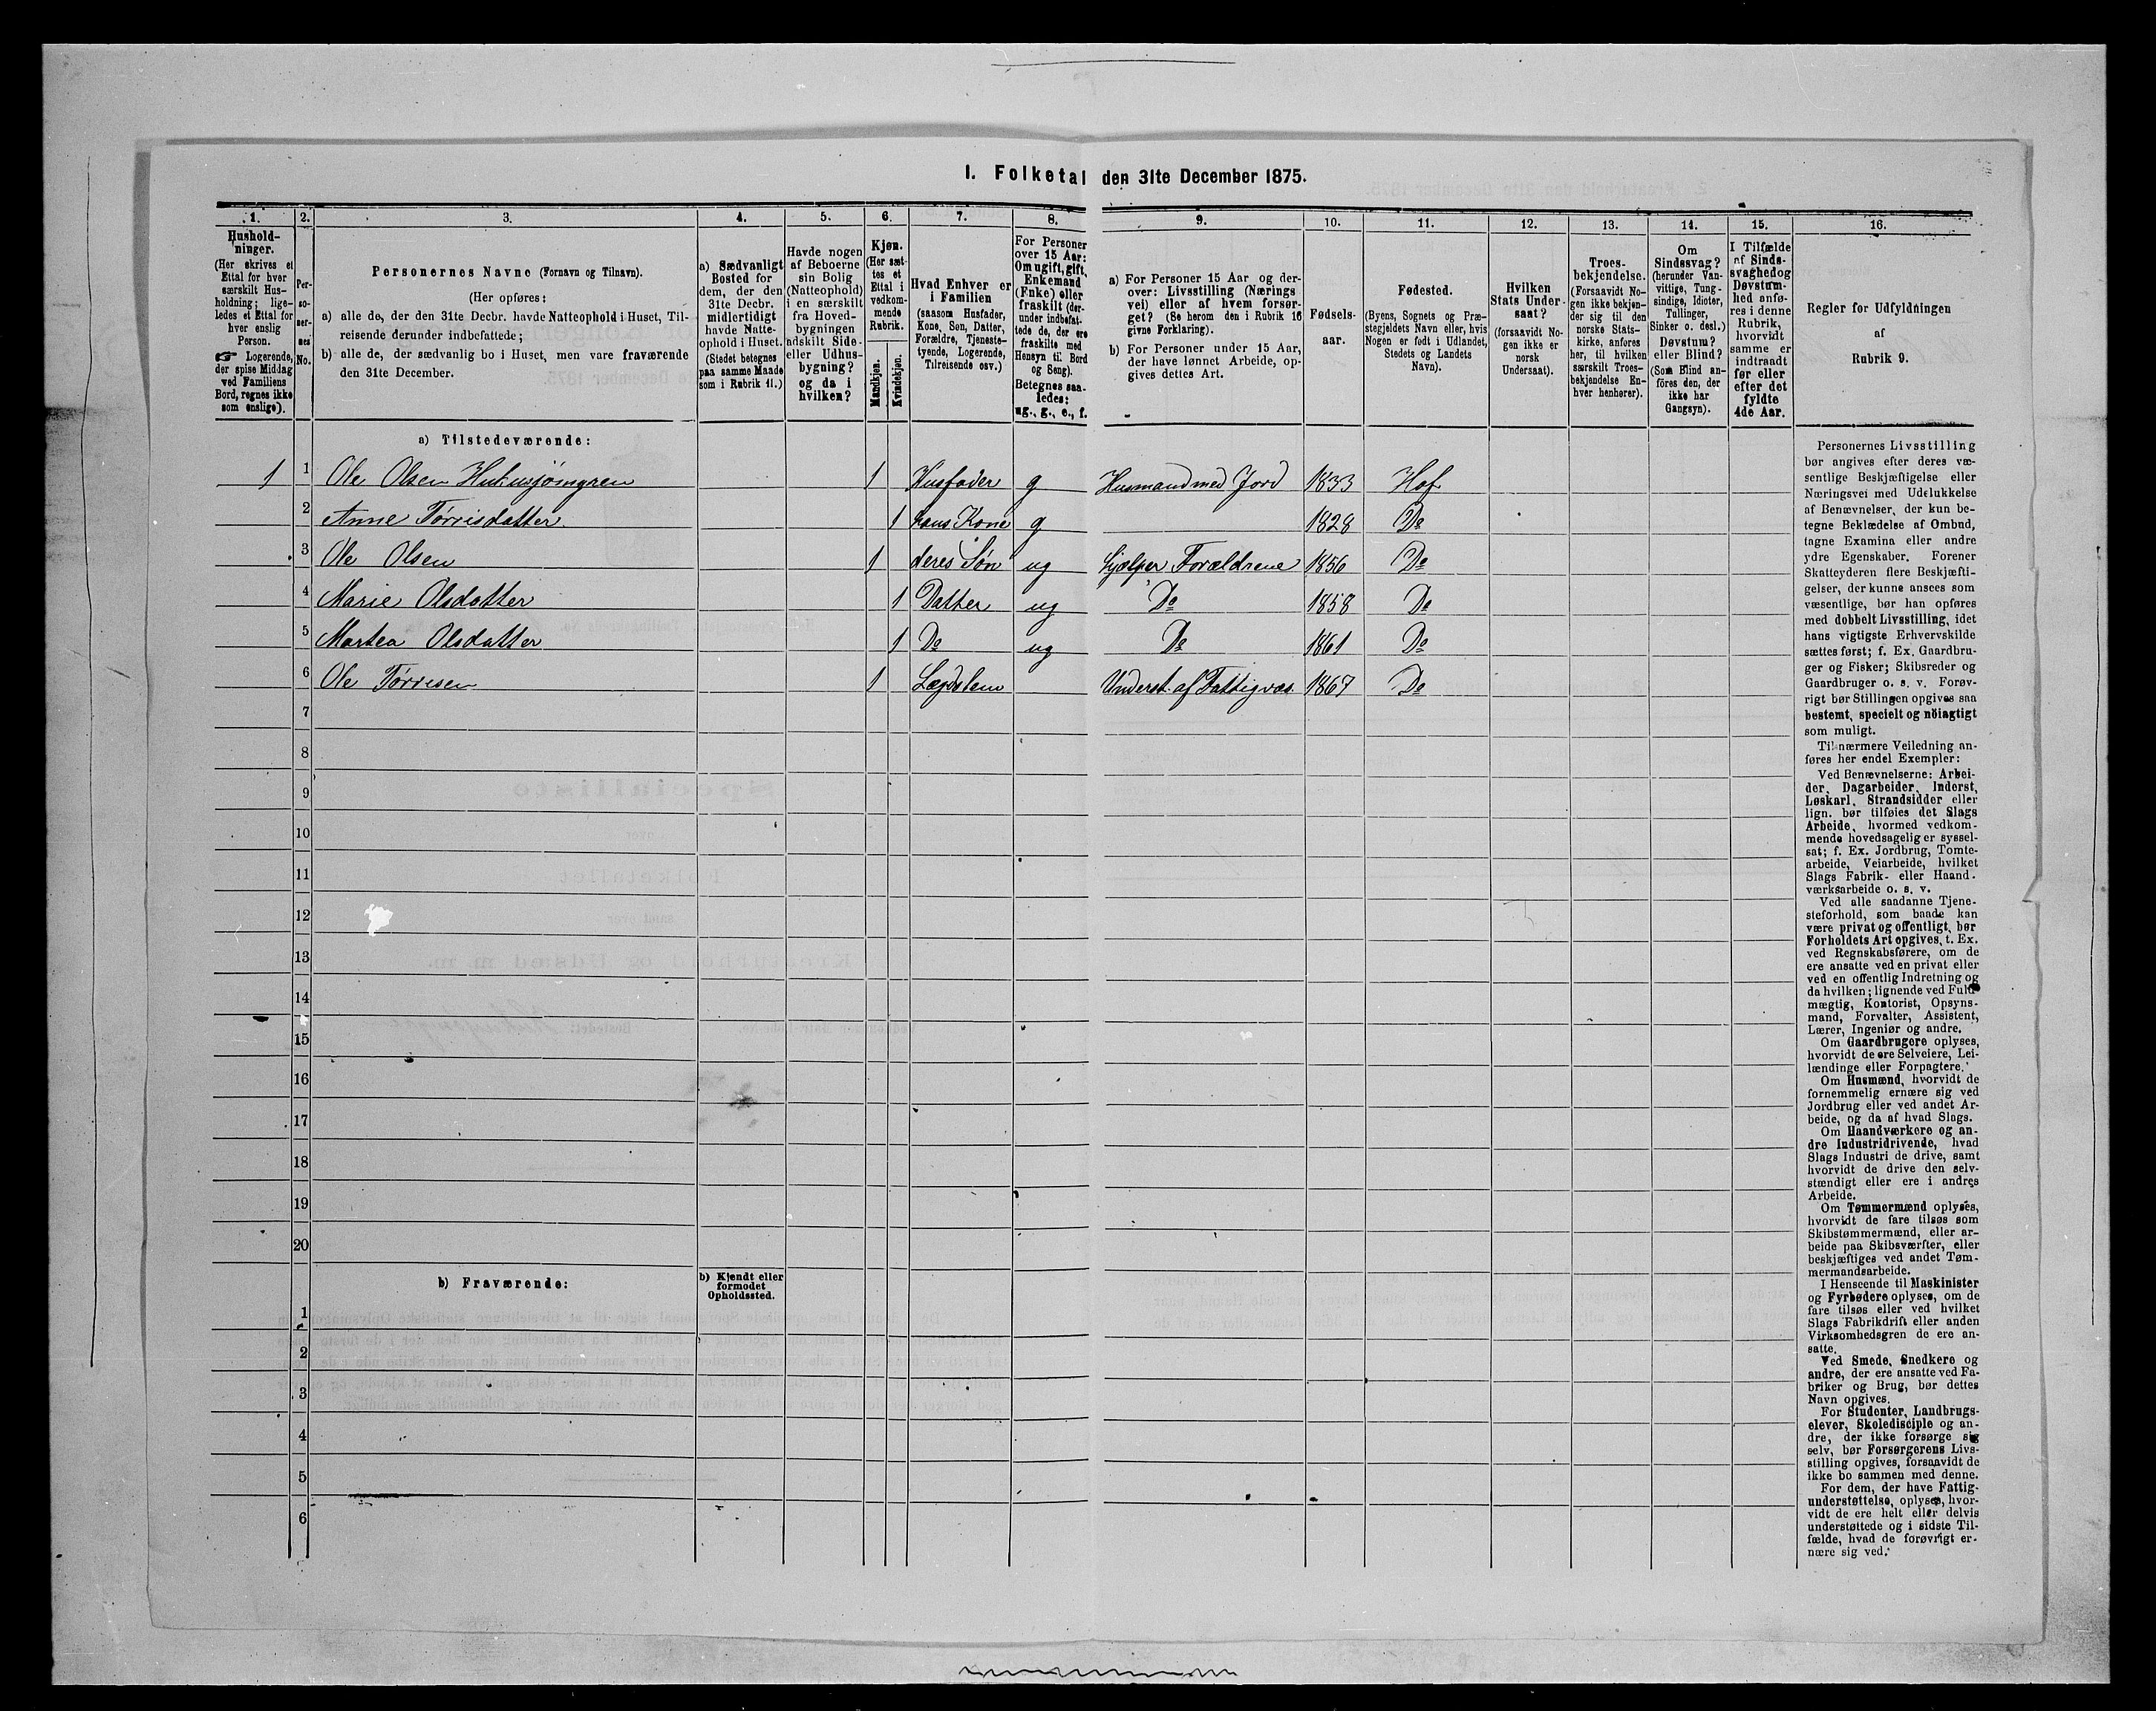 I. Folketal den 31te December 1875.
1. 2. 3. 4. 5. 6. 7. 8. 9. 10. 11. 12. 13. 14. 15. 16.
Hushold-
ninger.
(Her skrives et
Ettal for hver
særskilt Hus-
holdning; lige-
ledes et Ettal for
hver enslig
Person.
☞ Logerende,
der spise Middag
ved Familiens
Bord, regnes ikke
som enslige).
Per-
so-
ner-
nes
No.
Personernes Navne (Fornavn og Tilnavn).
(Her opføres:
a) alle de, der den 31te Decbr. havde Natteophold i Huset, Til-
reisende derunder indbefattede;
b) alle de, der sædvanlig bo i Huset, men vare fraværende
den 31te December.
a) Sædvanligt
Bosted for
dem, der den
31te Decbr.
midlertidigt
havde Natte-
ophold i Huset.
(Stedet betegnes
paa samme Maade
som i Rubrik 11.)
Havde nogen
af Beboerne
sin Bolig
(Natteophold)
i en særskilt
fra Hoved-
bygningen
adskilt Side-
eller Udhus-
bygning?
og da i
hvilken?
Kjøn.
(Her sæt-
tes et
Ettal i
vedkom-
mende
Rubrik.
Mandkjøn.
Kvindekjøn.
Hvad Enhver er
i Familien
(saasom Husfader,
Kone, Søn, Datter,
Forældre, Tjeneste-
tyende, Logerende,
Tilreisende osv.)
For Personer
over 15 Aar:
Om ugift, gift,
Enkemand
(Enke) eller
fraskilt (der-
under indbefat-
tede de, der ere
fraskilte med
Hensyn til Bord
og Seng).
Betegnes saa-
ledes:
ug., g., e., f.
a) For Personer 15 Aar og der-
over: Livsstilling (Nærings
vei) eller af hvem forsør-
get? (Se herom den i Rubrik 16
givne Forklaring).
b) For Personer under 15 Aar,
der have lønnet Arbeide, op-
gives dettes Art.
Fødsels-
aar.
Fødested.
(Byens, Sognets og Præ-
stegjeldets Navn eller, hvis
Nogen er født i Udlandet,
Stedets og Landets
Navn).
Hvilken
Stats Under-
saat?
(forsaavidt No-
gen ikke er
norsk
Undersaat).
Troes-
bekjendelse.
(Forsaavidt No-
gen ikke bekjen-
der sig til den
norske Stats-
kirke, anføres
her, til hvilken
særskilt Troes-
bekjendelse En-
hver henhører).
Om
Sindssvag?
(herunder Van-
vittige, Tung-
sindige, Idioter,
Tullinger,
Sinker o. desl.)
Døvstum?
eller Blind?
(Som Blind an-
føres den, der
ikke har
Gangsyn).
I Tilfælde
af Sinds-
svaghed og
Døvstum-
hed anfø-
res i denne
Rubrik,
hvorvidt
samme er
indtraadt
før eller
efter det
fyldte
4de Aar.
Regler for Udfyldningen
af
Rubrik 9.
a) Tilstedeværende:
1 1 Ole Olsen 1 Husfader g Husmand med Jord 1833 Hof
2 Anne Tørrisdatter 1 hans Kone g 1828 Do
3 Ole Olsen 1 deres Søn ug hjælper Forældrene 1856 Do
4 Marie Olsdatter 1 Datter ug Do 1858 Do
5 Martea Olsdatter 1 Do ug Do 1861 Do
6 Ole Tørresen 1 Lægdslem Underst. af Fattigvæs. 1867 Do
7
8
9
10
11
12
13
14
15
16
17
18
19
20
b) Fraværende:
b) Kjendt eller
formodet
Opholdssted.
1
2
3
4
5
6
Personernes Livsstilling
bør angives efter deres væ-
sentlige Beskjæftigelse eller
Næringsvei med Udelukkelse
af Benævnelser, der kun be-
tegne Beklædelse af Ombud,
tagne Examina eller andre
ydre Egenskaber. Forener
Skatteyderen flere Beskjæfti-
gelser, der kunne ansees som
væsentlige, bør han opføres
med dobbelt Livsstilling, idet
hans vigtigste Erhvervskilde
sættes først; f. Ex. Gaardbru-
ger og Fisker; Skibsreder og
Gaardbruger o. s. v. Forøv-
rigt bør Stillingen opgives saa
bestemt, specielt og nöiagtigt
som muligt.
Til nærmere Veiledning an-
føres her endel Exempler:
Ved Benævnelserne: Arbei-
der, Dagarbeider, Inderst,
Løskarl, Strandsidder eller
lign. bør tilføies det Slags
Arbeide, hvormed vedkom-
mende hovedsagelig er syssel-
sat; f. Ex. Jordbrug, Tomte-
arbeide, Veiarbeide, hvilket
Slags Fabrik- eller Haand-
værksarbeide o. s. v.
Ved alle saadanne Tjene-
steforhold, som baade kan
være privat og offentligt, bør
Forholdets Art opgives, t. Ex.
ved Regnskabsførere, om de
ere ansatte ved en privat eller
ved en offentlig Indretning og
da hvilken; lignende ved Fuld-
mægtig, Kontorist, Opsyns-
mand, Forvalter, Assistent,
Lærer, Ingeniør og andre.
Om Gaardbrugere oplyses,
hvorvidt de ere Selveiere, Lei-
lændinge eller Forpagtere.
Om Husmænd, hvorvidt de
fornemmelig ernære sig ved
Jordbrug eller ved andet Ar-
beide, og da af hvad Slags.
Om Haandværkere og an-
dre Industridrivende, hvad
Slags Industri de drive, samt
hvorvidt de drive den selv-
stændigt eller ere i andres
Arbeide.
Om Tømmermænd oplyses,
hvorvidt de fare tilsøs som
Skibstømmermænd, eller ar-
beide paa Skibsværfter, eller
beskjæftiges ved andet Tøm-
mermandsarbeide.
I Henseende til Maskinister
og Fyrbødere oplyses, om de
fare tilsøs eller ved hvilket
Slags Fabrikdrift eller anden
Virksomhedsgren de ere an-
satte.
Ved Smede, Snedkere og
andre, der ere ansatte ved Fa-
briker og Brug, bør dettes
Navn opgives.
For Studenter, Landbrugs-
elever, Skoledisciple og an-
dre, der ikke forsørge sig
selv, bør Forsørgerens Livs-
stilling opgives, forsaavidt de
ikke bo sammen med denne.
For dem, der have Fattig-
understøttelse, oplyses, hvor-
vidt de ere helt eller delvis
understøttede og i sidste Til-
fælde, hvad de forøvrigt er-
nære sig ved.